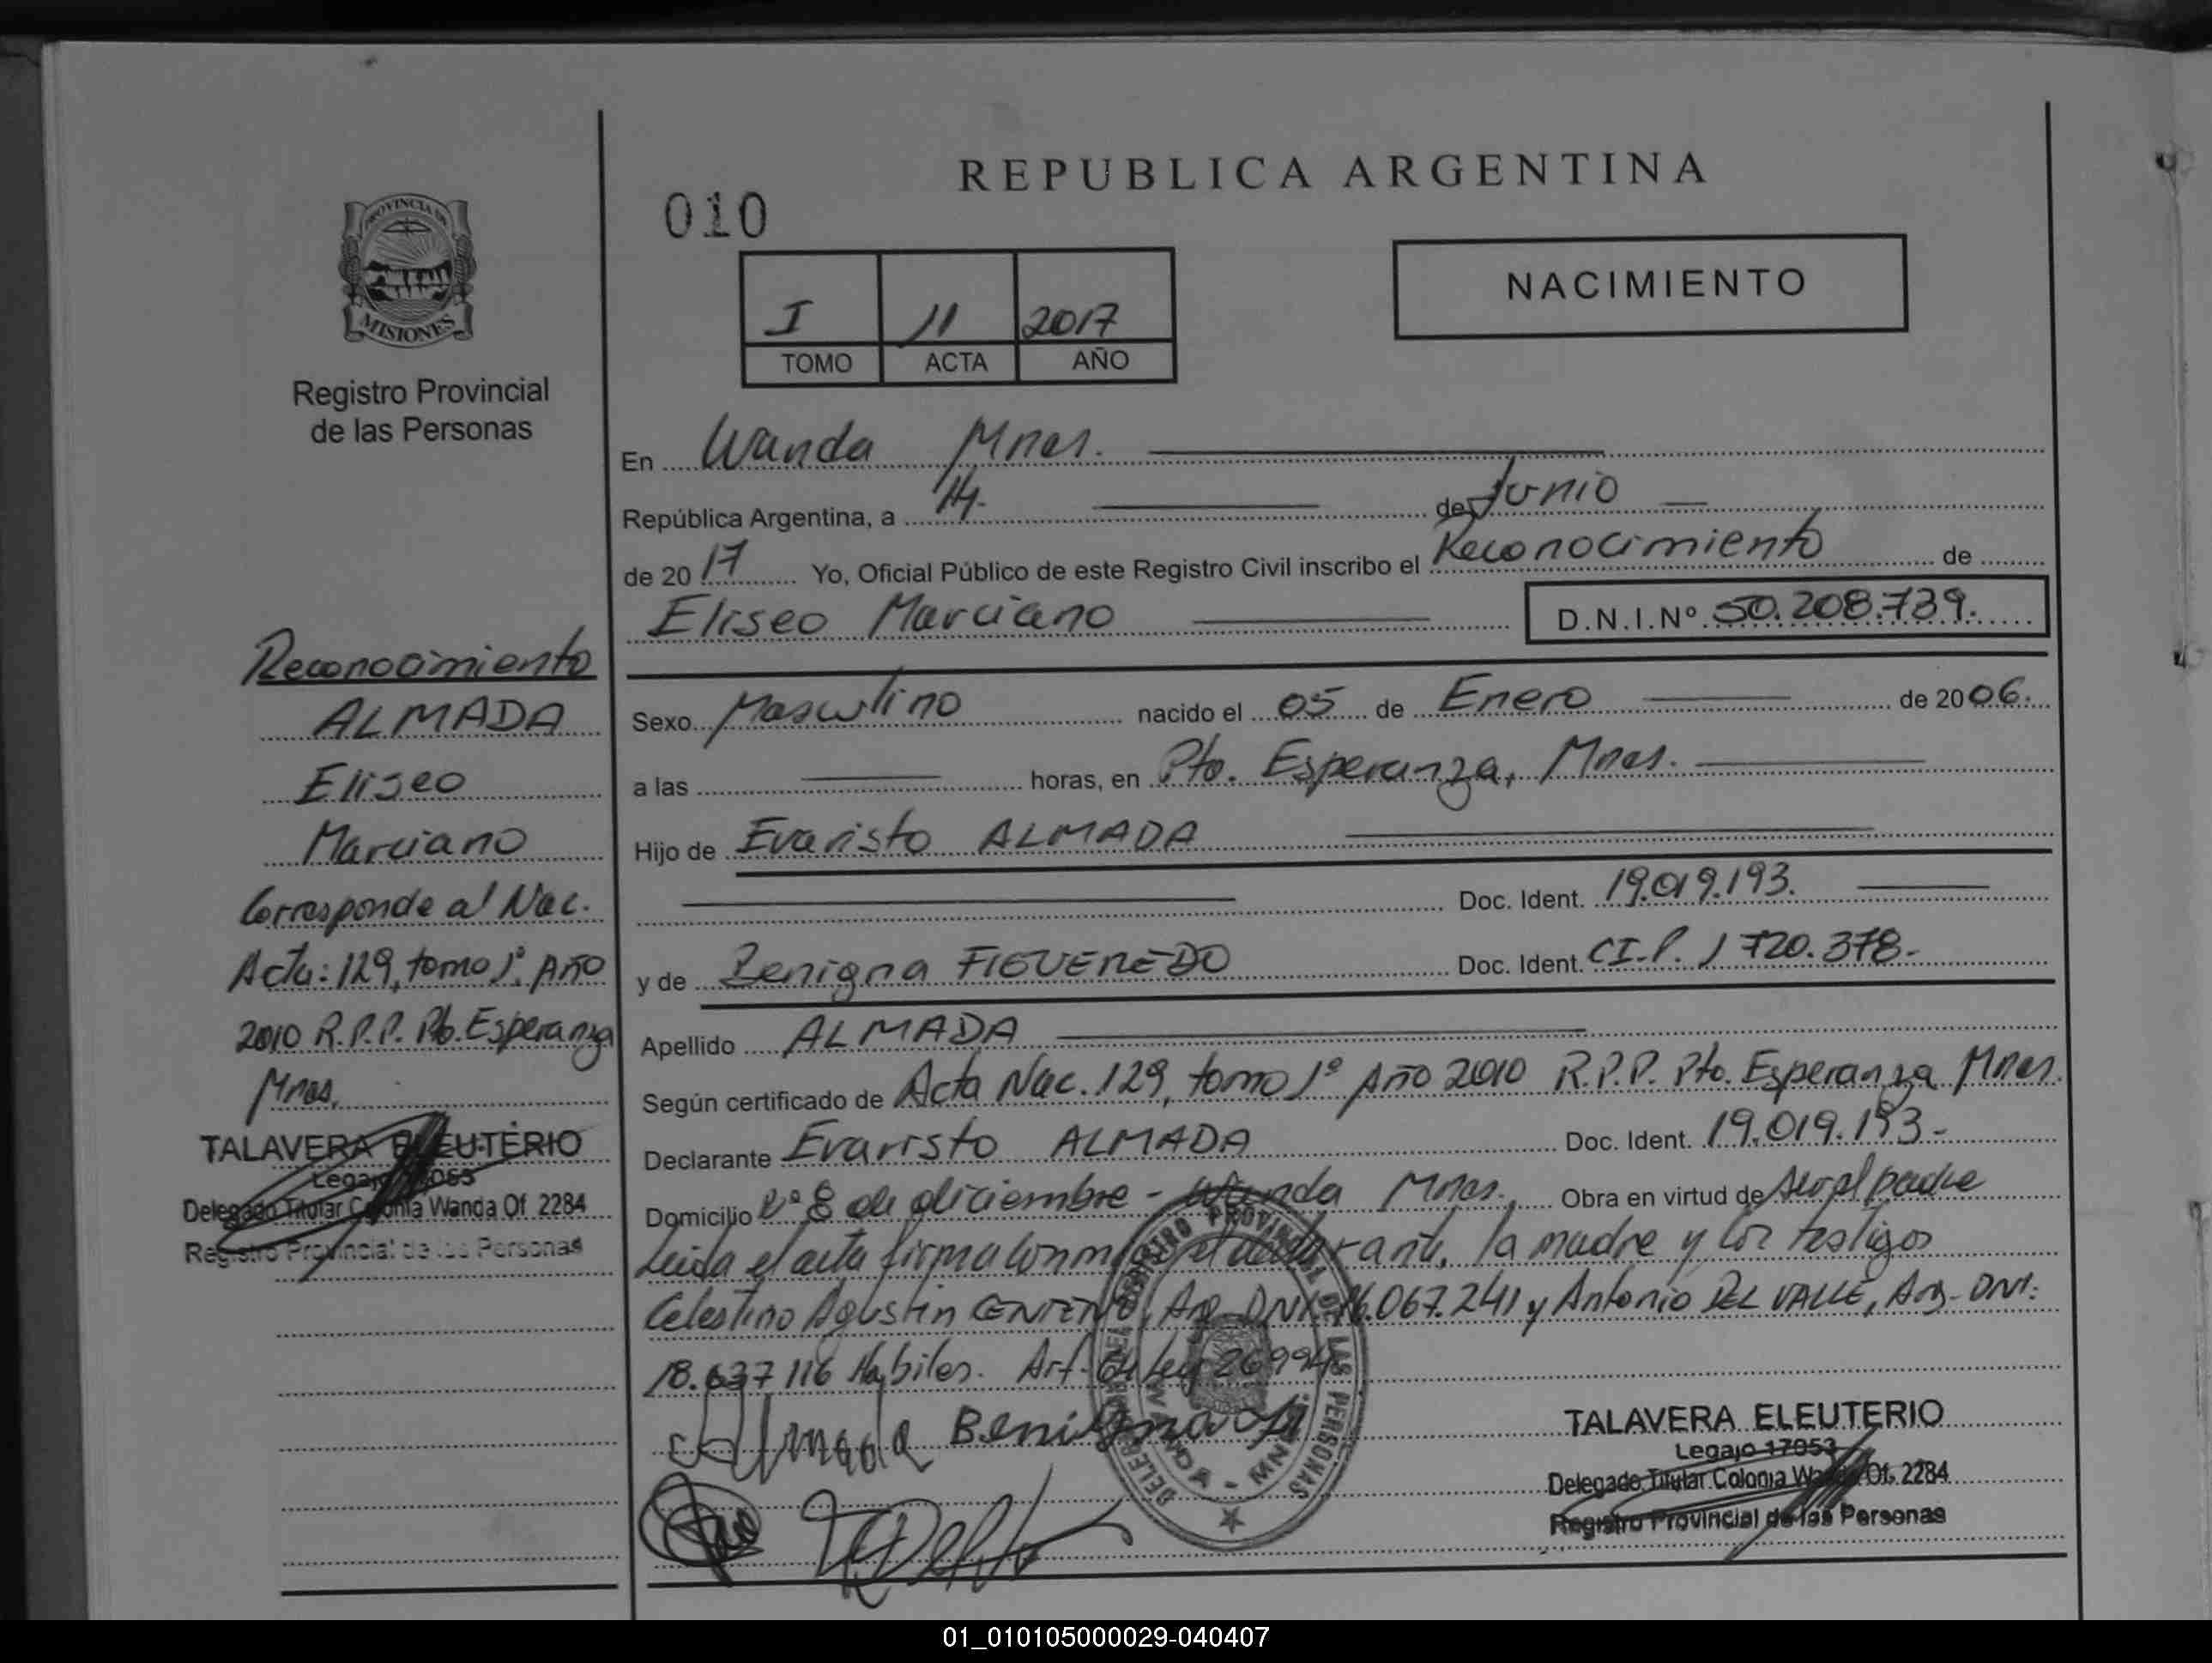 REPUBLICA ARGENTINA
010
NACIMIENTO
I 11 2017
TOMO ACTA AÑO
PROVINCIA DE
MISIONES
Registro Provincial
de las Personas
En Wanda Mnes.
República Argentina, a 14. de Junio
de 20 17 Yo, Oficial Público de este Registro Civil inscribo el Reconocimiento de
Eliseo Marciano D.N.I.Nº 50.208.739.
Sexo Masculino nacido el 05 de Enero de 20 06.
a las horas, en Pto. Esperanza, Mnes.
Hijo de Evaristo ALMADA
Doc. Ident. 19.019.193.
y de Benigna FIGUEREDO Doc. Ident. C.I.P. 1720.378-
Apellido ALMADA
Según certificado de Acta Nac. 129, tomo 1º Año 2010 R.P.P. Pto. Esperanza Mnes.
Declarante Evaristo ALMADA Doc. Ident. 19.019.193-
Domicilio Bº 8 de diciembre - Wanda Mnes. Obra en virtud de ser el padre
Leida el acta firma conmigo el declarante, la madre y los testigos
Celestino Agustin CENTENO, Arg. DNI 16.067.241 y Antonio DEL VALLE, Arg. DNI:
18.637116 Habiles. Art. 64 Ley 26994
Almada Benigna
TALAVERA ELEUTERIO
Legajo 17053
Delegado Titular Colonia Wanda Of. 2284
Registro Provincial de las Personas
Reconocimiento
ALMADA
Eliseo
Marciano
Corresponde al Nac.
Acta: 129, tomo 1º. Año
2010 R.P.P. Pto. Esperanza
Mnes.
TALAVERA ELEUTERIO
Legajo 17053
Delegado Titular Colonia Wanda Of. 2284
Registro Provincial de las Personas
REGISTRO PROVINCIAL DE LAS PERSONAS
WANDA - MNES
01_010105000029-040407